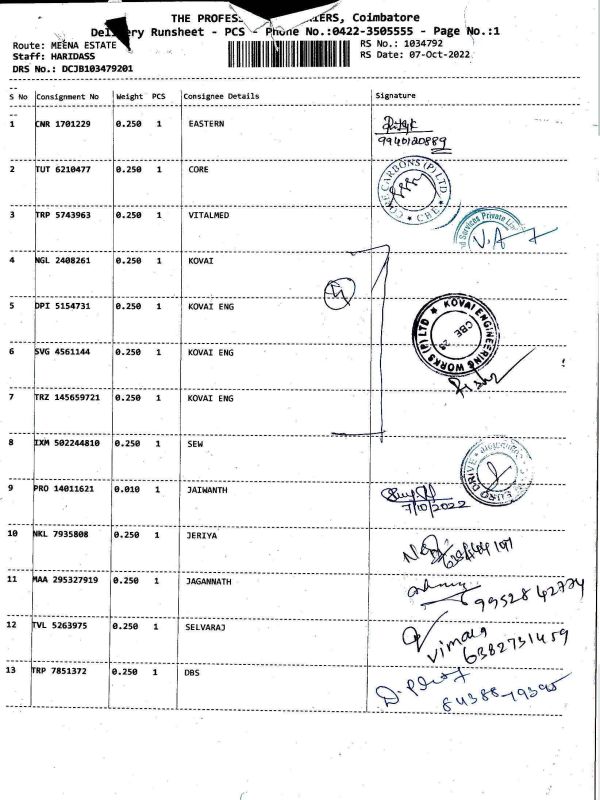 THE PROFES IERS, Coimbatore
Delivery Runsheet - PCS - Phone No.:0422-3505555 - Page No.:1
Route: MEENA ESTATE
RS No.: 1034792
Staff: HARIDASS
RS Date: 07-Oct-2022
DRS No.: DCJB103479201
S No Consignment No Weight PCS Consignee Details Signature
1 CNR 1701229 0.250 1 EASTERN
9940120889
2 TUT 6210477 0.250 1 CORE
CORE CARBONS (P) LTD * CBE *
3 TRP 5743963 0.250 1 VITALMED
Services Private
V.A
4 NGL 2408261 0.250 1 KOVAI
4
5 DPI 5154731 0.250 1 KOVAI ENG
KOVAI ENGINEERING WORKS (P) LTD *
CBE
6 SVG 4561144 0.250 1 KOVAI ENG
7 TRZ 145659721 0.250 1 KOVAI ENG
8 IXM 502244810 0.250 1 SEW
EURO DRIVE
9 PRO 14011621 0.010 1 JAIWANTH
7/10/2022
10 NKL 7935808 0.250 1 JERIYA
11 MAA 295327919 0.250 1 JAGANNATH
9952842774
12 TVL 5263975 0.250 1 SELVARAJ
Vimala
6382731459
13 TRP 7851372 0.250 1 DBS